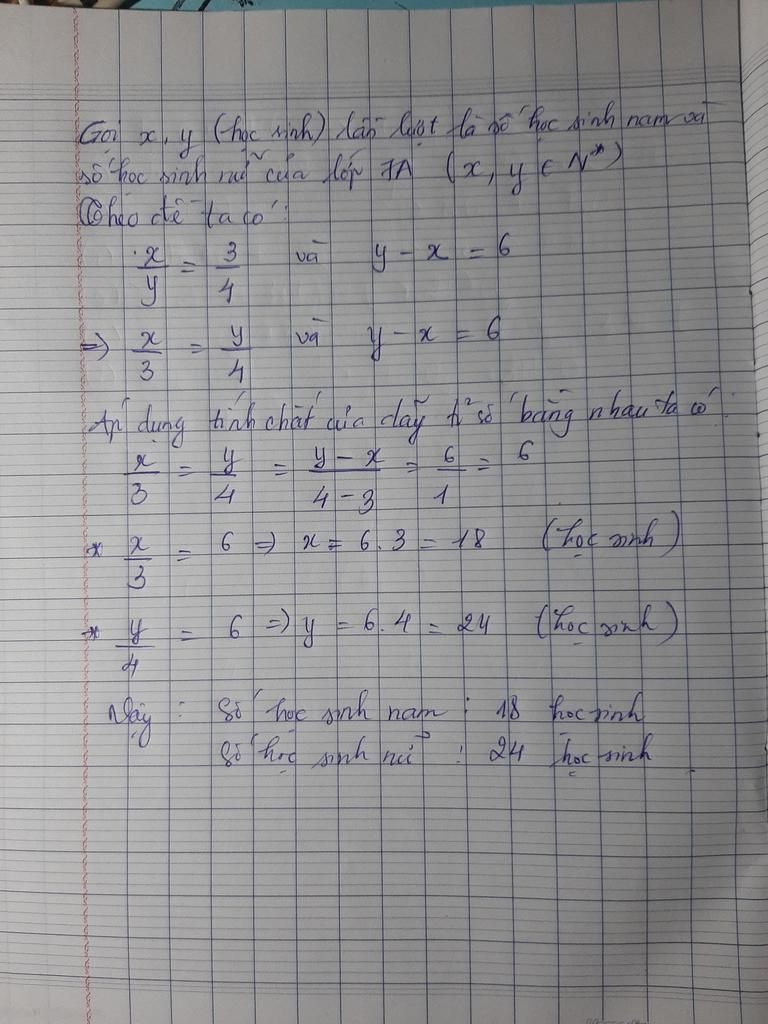 Gọi x, y (học sinh) lần lượt là số học sinh nam và
số học sinh nữ của lớp 7A (x, y ∈ N*)
Theo đề ta có:
x/y = 3/4 và y - x = 6
=> x/3 = y/4 và y - x = 6
Áp dụng tính chất của dãy tỉ số bằng nhau ta có:
x/3 = y/4 = (y - x)/(4 - 3) = 6/1 = 6
* x/3 = 6 => x = 6.3 = 18 (học sinh)
* y/4 = 6 => y = 6.4 = 24 (học sinh)
Vậy: Số học sinh nam: 18 học sinh
Số học sinh nữ: 24 học sinh